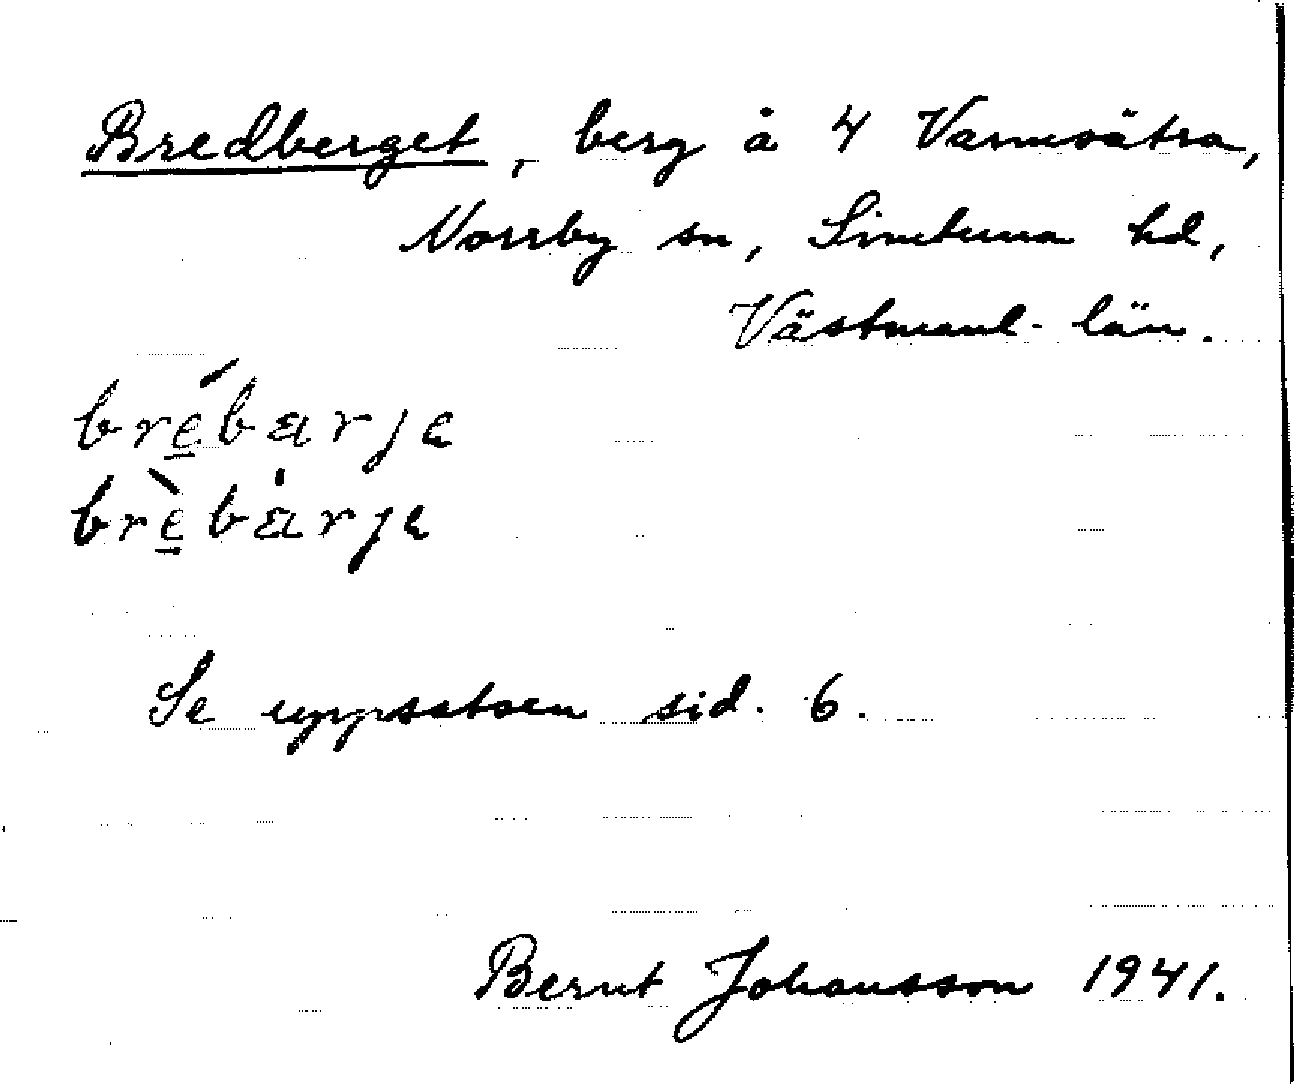 Bredberget, berg å 4 Varmsätra,
Norrby sn, Simtuna hd,
Västmanl. län.
bré̱bærje
brè̱bærje
Se uppsatsen sid. 6.
Bernt Johansson 1941.